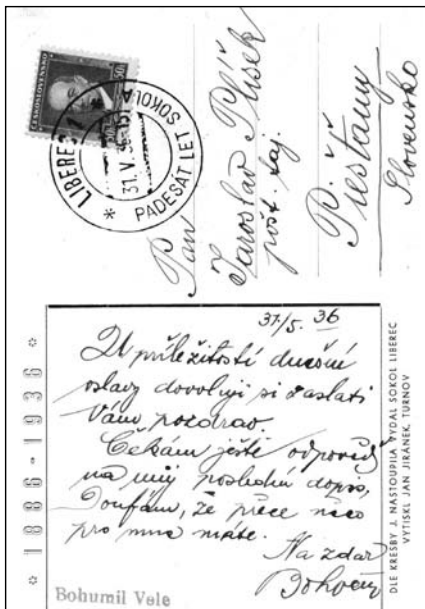 ČESKOSLOVENSKO
LIBEREC 1
31. V. 36 - 15
* PADESÁT LET SOKOLA
Pan
Jaroslav Plíšek
pošt. taj.
Piešťany
Slovensko
* 1886 - 1936 *
31/5. 36
U příležitosti dnešní
oslavy dovoluji si zaslati
Vám pozdrav.
Čekám ještě odpověď
na můj poslední dopis,
Doufám, že přece něco
pro mne máte.
Na zdar
Bohumil Vele
DLE KRESBY J. NASTOUPILA VYDAL SOKOL LIBEREC
VYTISKL JAN JIRÁNEK, TURNOV